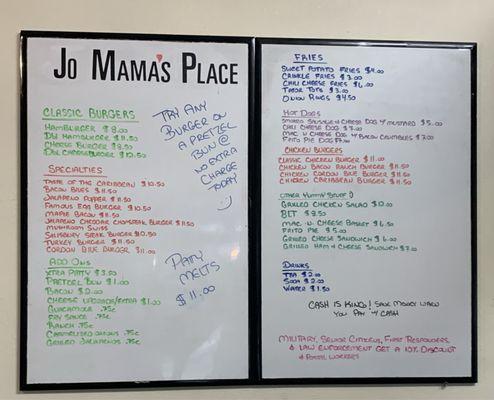 Jo Mama's Place
Classic Burgers
Hamburger $8.00
Dbl Hamburger $11.50
Cheese Burger $8.50
Dbl Cheeseburger $12.50
Specialties
Taste of the Caribbean $10.50
Bacon Blues $11.50
Jalapeno Popper $11.50
Famous Egg Burger $10.50
Maple Bacon $11.50
Jalapeno Cheddar Chopsteak Burger $11.50
Mushroom Swiss
Salisbury Steak Burger $10.50
Turkey Burger $11.50
Cordon Blue Burger $11.00
Add Ons
Xtra Patty $3.50
Pretzel Bun $1.00
Bacon $2.00
Cheese Upgrade/Extra $1.00
Guacamole .75¢
Fry Sauce .75¢
Ranch .75¢
Caramelized Onions .75¢
Grilled Jalapenos .75¢
Try Any
Burger on
a Pretzel
Bun @
No Extra
Charge
Today
:)
Patty
Melts
$11.00
Fries
Sweet Potato Fries $4.00
Crinkle Fries $3.00
Chili Cheese Fries $6.00
Tator Tots $3.00
Onion Rings $4.50
Hot Dogs
Smoked Sausage w/ Cheese Dog w/ Mustard $5.00
Chili Cheese Dog $7.00
Mac-n-Cheese Dog w/ Bacon Crumbles $7.00
Frito Pie Dog
Chicken Burgers
Classic Chicken Burger $11.00
Chicken Bacon Ranch Burger $11.50
Chicken Cordon Blue Burger $11.50
Chicken Caribbean Burger $11.50
Other Yummy Stuff :)
Grilled Chicken Salad $10.00
BLT $8.50
Mac-n-Cheese Basket $6.50
Frito Pie $5.00
Grilled Cheese Sandwich $6.00
Grilled Ham & Cheese Sandwich $7.00
Drinks
Tea $2.00
Soda $2.00
Water $1.50
Cash is King! Save Money When
You Pay w/ Cash
Military, Senior Citizens, First Responders
& Law Enforcement Get a 10% Discount
& Postal Workers